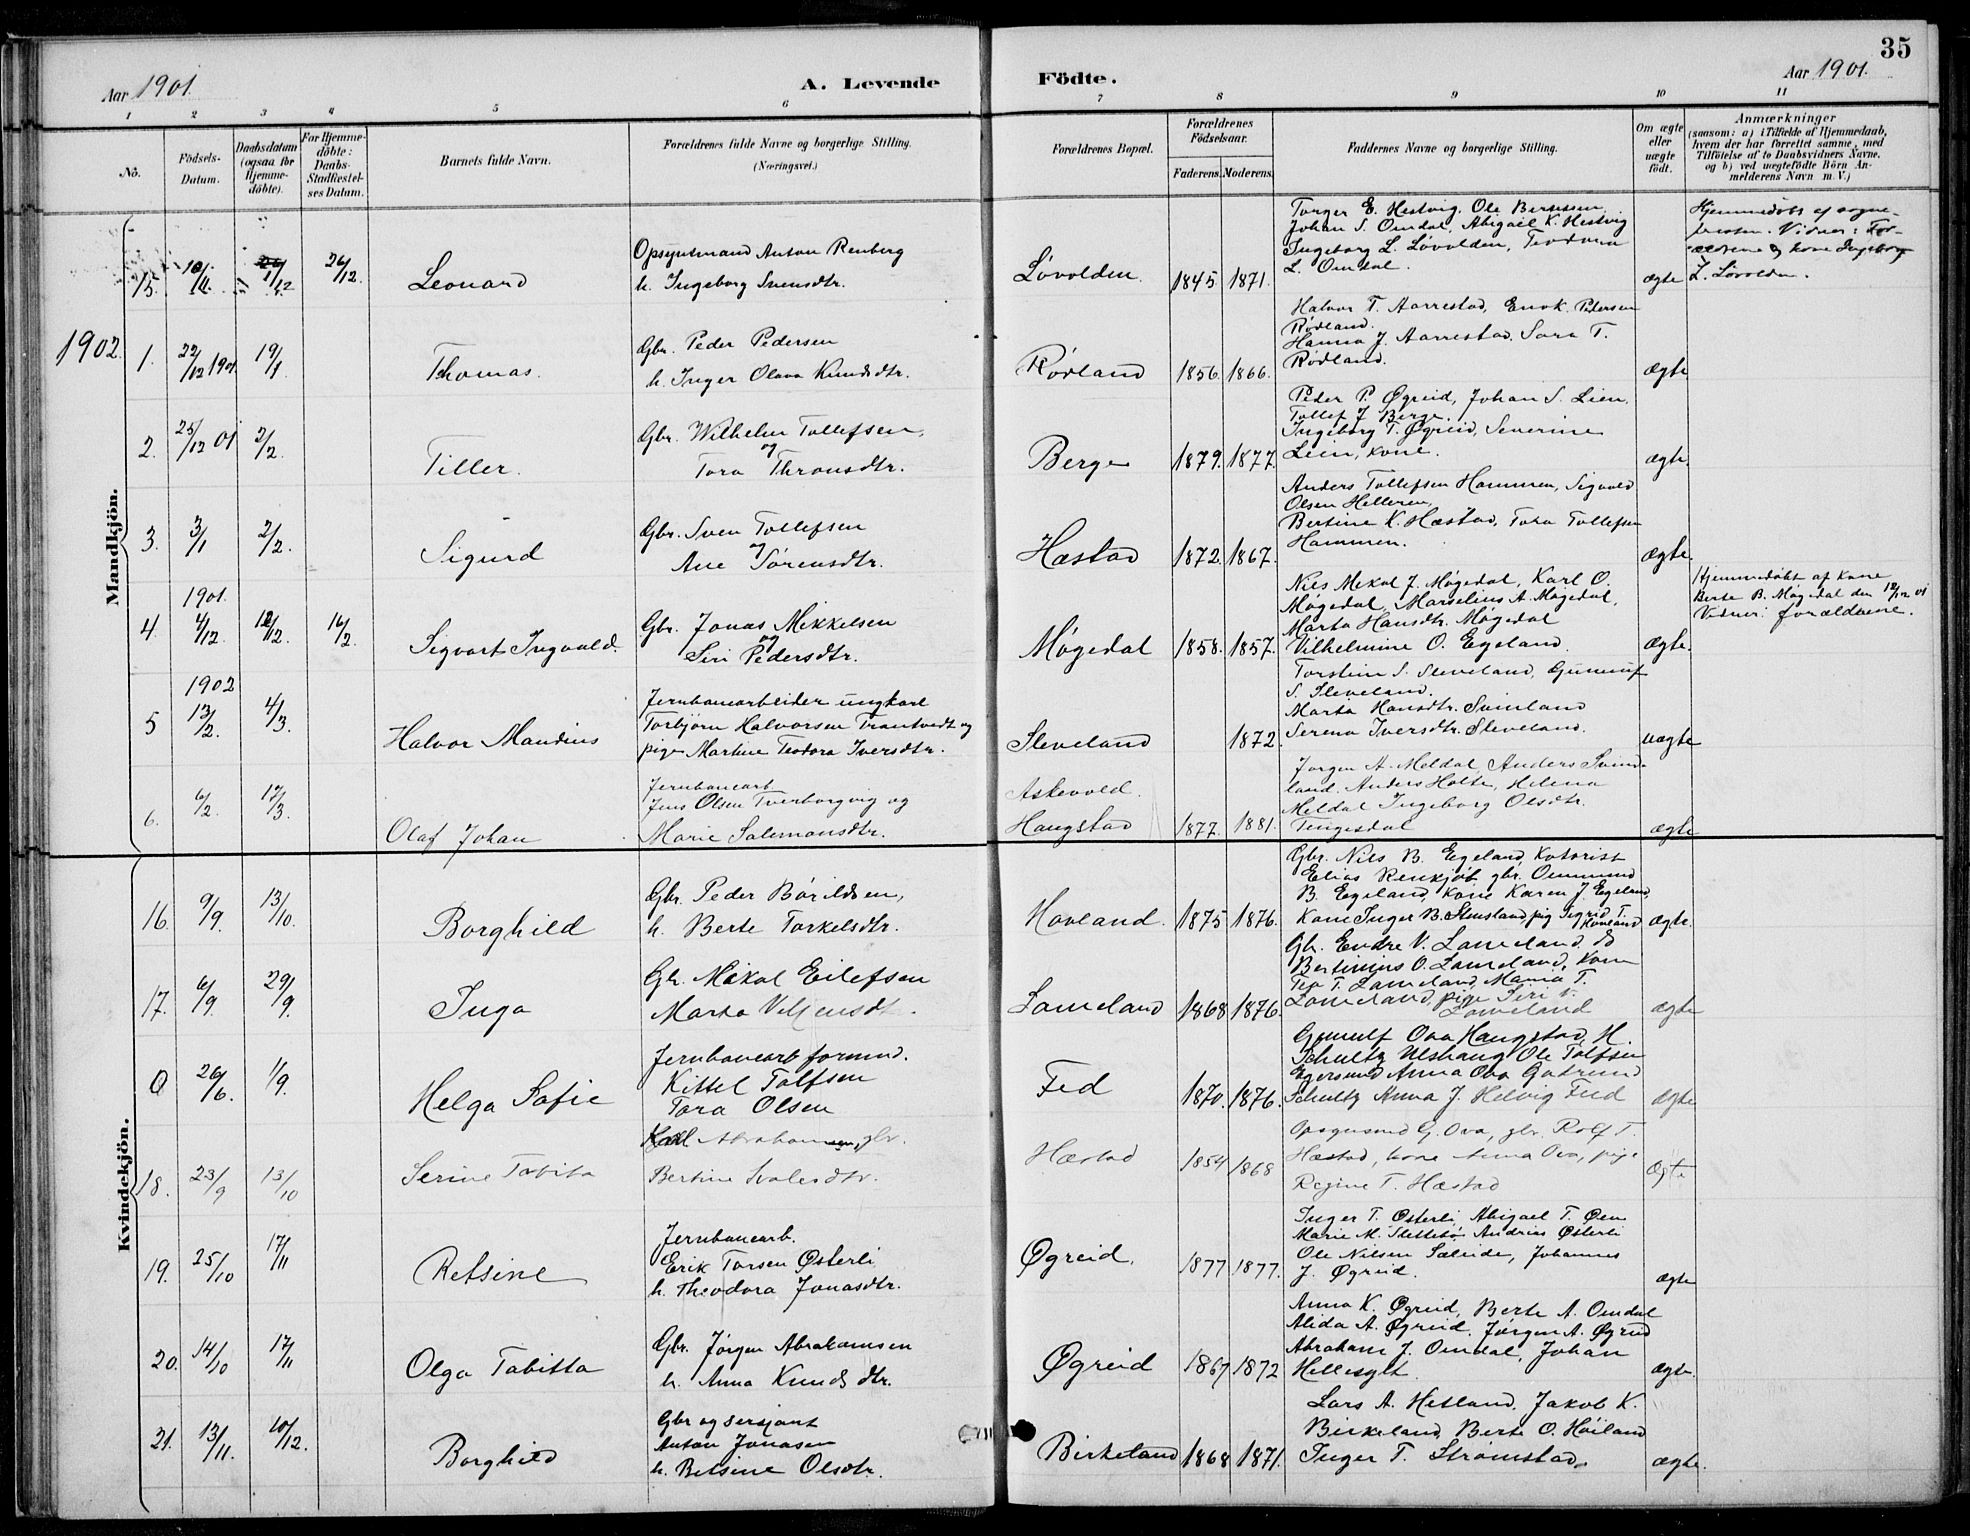 35
Aar 1901.
A. Levende
Födte.
Aar 1901.
1 2 3 4 5 6 7 8 9 10 11
No.
Födsels-
Datum.
Daabsdatum
(ogsaa for
Hjemme-
døbte).
For Hjemme-
døbte:
Daabs-
Stadfæstel-
ses Datum.
Barnets fulde Navn.
Forældrenes fulde Navne og borgerlige Stilling.
(Næringsvei.)
Forældrenes Bopæl.
Forældrenes
Födselsaar.
Faderens. Moderens.
Faddernes Navne og borgerlige Stilling.
Om ægte
eller
uægte
født.
Anmærkninger
(saasom: a) i Tilfælde af Hjemmedaab,
hvem der har forrettet samme, med
Tilföielse af to Daabsvidners Navne,
og b) ved uægtefödte Börn An-
melderens Navn m. V.)
Mandkjön.
15. 10/11. 1/12 26/12. Leonard
Opsynsmand Anton Renberg
h. Ingeborg Svensdtr.
Løvolden 1845. 1871.
Torger E. Hestvig. Ole Berntsen
Johan S. Omdal, Abigael K. Hestvig
Ingeborg L. Løvolden, Teodora
L. Omdal.
ægte
Hjemmedøbt af sogne-
præsten. Vidner: For-
ældrene og kone Ingeborg
L. Løvolden.
1902.
1. 22/12 1901 19/1. Thomas.
Gbr. Peder Pedersen
h. Inger Olava Knudsdtr.
Rødland 1856. 1866.
Halvor T. Aarrestad, Enok Pedersen
Rødland.
Hanna J. Aarrestad. Sara T.
Rødland.
ægte
2. 25/12 01 2/2. Tiller.
Gbr. Wilhelm Tollefsen,
og
Tora Thronsdtr.
Berge 1879. 1877.
Peder P. Øgreid, Johan S. Lien,
Tollef J. Berge.
Ingeborg T. Øgreid, Severine
Lein, kone.
ægte.
3. 3/1 2/2. Sigurd
Gbr. Sven Tollefsen
og
Ane Sørensdtr.
Hæstad 1872. 1867.
Anders Tollefsen Hammen, Sigvald
Olsen Helleren,
Bertine K. Hæstad, Tora Tollefsen
Hammen.
ægte
1901.
4. 4/12. 12/2. 16/2. Sigvart Ingvald.
Gbr. Jonas Mikkelsen
og
Siri Pedersdtr.
Møgedal 1858. 1857.
Nils Mikal J. Møgedal, Karl O.
Møgedal, Marselius A. Møgedal,
Marta Hansdtr. Møgedal
Vilhelmine O. Egeland.
ægte.
Hjemmedøbt af kone
Berte B. Møgedal den 12/12 01
Vidner: forældrene.
1902
5 13/2. 4/3. Halvor Mandius
Jernbanearbeider ungkarl
Torbjørn Halvorsen Trantvedt og
pige Martine Teodora Iversdtr.
Sleveland 1872.
Torstein S. Sleveland, Gunnuf
S. Sleveland.
Marta Hansdtr. Svinland
Serena Iversdtr. Sleveland.
uægte
6. 6/2. 17/3. Olaf Johan
Jernbanearb
Jens Olsen Tverborgvig og
Marie Salemonsdtr.
Askevold.
Haugstad 1877. 1881.
Jørgen A. Meldal, Anders Svind-
land. Anders Holte, Helena
Meldal Ingeborg Olsdtr.
Tengesdal
ægte
Kvindekjön.
16. 9/9. 13/10. Borghild
Gbr. Peder Børildsen,
h. Berte Torkelsdtr.
Hovland. 1875 1876.
Gbr. Nils B. Egeland, Kasserist
Elias Renkjøb gbr. Ommund
B. Egeland, kone Karen J. Egeland,
Kone Inger B. Stensland pig Sigrid T.
Hovland
ægte.
17. 6/9. 29/9. Inga
Gbr. Mikal Eilefsen
Marta Vellensdtr.
Lomeland 1868 1876.
Gbr. Endre V. Lomeland. do
Bertinius O. Lomeland, kone
Tea T. Lomeland, Maria T.
Lomeland, pige Seri V.
Lomeland
ægte
0 26/6. 1/9. Helga Sofie
Jernbanearb formnd.
Kittel Tolfsen
Tora Olsen
Fed 1870. 1876.
Gunulf Ova Haugstad, H.
Schultz Ulshaug Ole Tolfsen
Egersund Anna Ova Gudrund
Schultz Anna J. Helvig Fed
ægte
18. 23/9 13/10 Serine Tabita
Karl Abrahamsen, gbr.
Bertine Svalesdtr.
Hæstad 1854 1868
Opsynsmd G. Ova, gbr. Rolf T.
Hæstad, kone Anna Ova, pige
Regine T. Hæstad
ægte
19. 25/10 17/11 Retsine
Jernbanearb.
Erik Torsen Østerli
h. Theodora Jonasdtr.
Øgreid. 1877 1877.
Inger T. Osterli, Abigael T. Øen
Marie M. Slettebø Andrias Østerli
Ole Nilsen Sæleide, Johannes
J. Øgreid.
ægte
20. 14/10 17/11 Olga Tabitta
Gbr. Jørgen Abrahamsen
h. Anna Knudsdtr.
Øgreid 1867 1872
Anna K. Øgreid, Berte A. Omdal
Alida A. Øgreid. Jørgen A. Øgreid
Abraham J. Omdal, Johan
Hellesylt.
ægte.
21. 13/11. 10/12. Borghild
Gbr og sersjant
Anton Jonasen
h. Betsine Olsdtr.
Birkeland 1868 1871.
Lars A. Hetland. Jakob K.
Birkeland Berte O. Høiland
Inger T. Strømstad.
ægte.